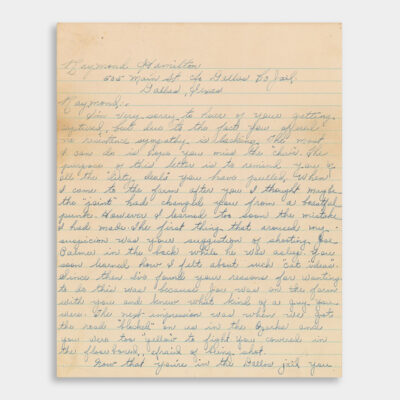 Raymond Hamilton
505 Main St c/o Dallas Co Jail,
Dallas, Texas
Raymond:-
I'm very sorry to hear of your getting
captured, but due to the fact you offered
no resistence sympathy is lacking. The most
I can do is hope you miss the "chair." The
purpose of this letter is to remind you of
all the "dirty deals" you have pulled. When
I came to the farm after you I thought maybe
the "joint" had changed you from a boastful
punk. However I learned too soon the mistake
I had made. The first thing that aroused my
suspicion was your suggestion of shooting Joe
Palmer in the back while he was asleep. You
soon learned how I felt about such "cat ideas."
Since then I've found your reasons for wanting
to do this was because Joe was on the farm
with you and knew what kind of a guy you
were. The next impression was when we got
the road "blocked" on us in the Ozarks and
you were too "yellow" to fight you cowered in
the floorboard, afraid of being shot.
Now that you're in the Dallas jail you